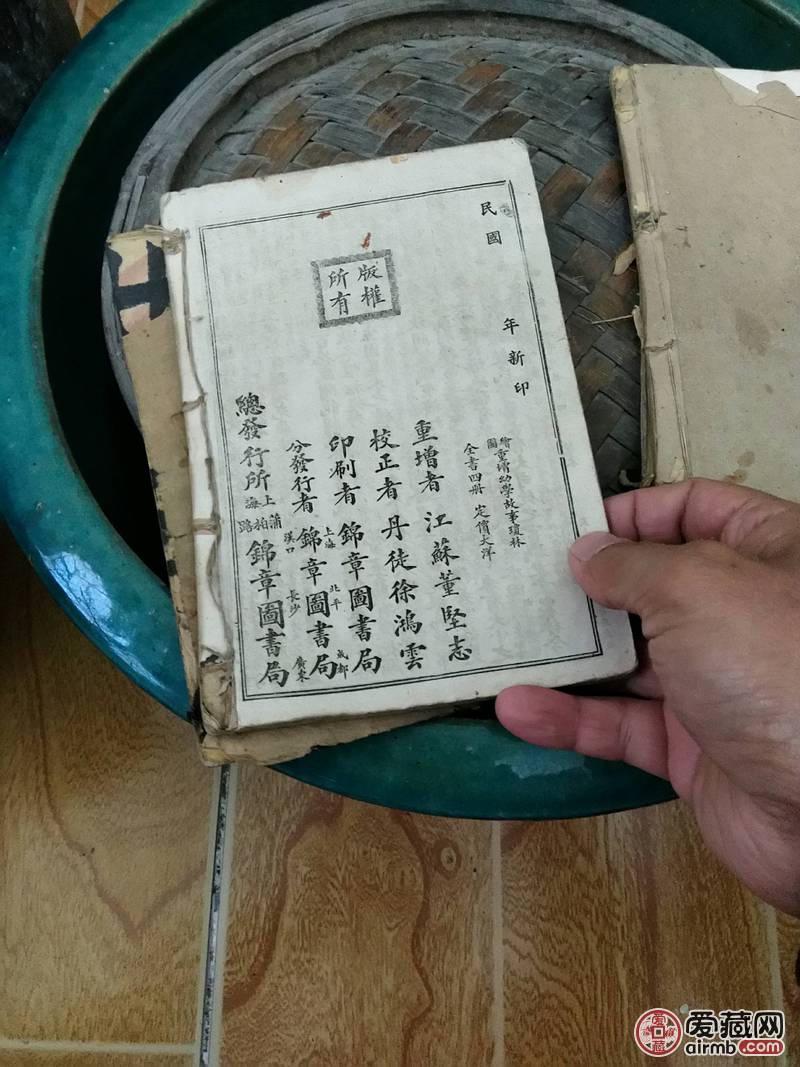 民國 年新印
版權所有
繪圖重增幼學故事瓊林
全書四册 定價大洋
重增者 江蘇董堅志
校正者 丹徒徐鴻雲
印刷者 錦章圖書局
分發行者 上海 漢口 北平 長沙 成都 廣東 錦章圖書局
總發行所 上海蒲柏路 錦章圖書局
爱藏网
airmb.com